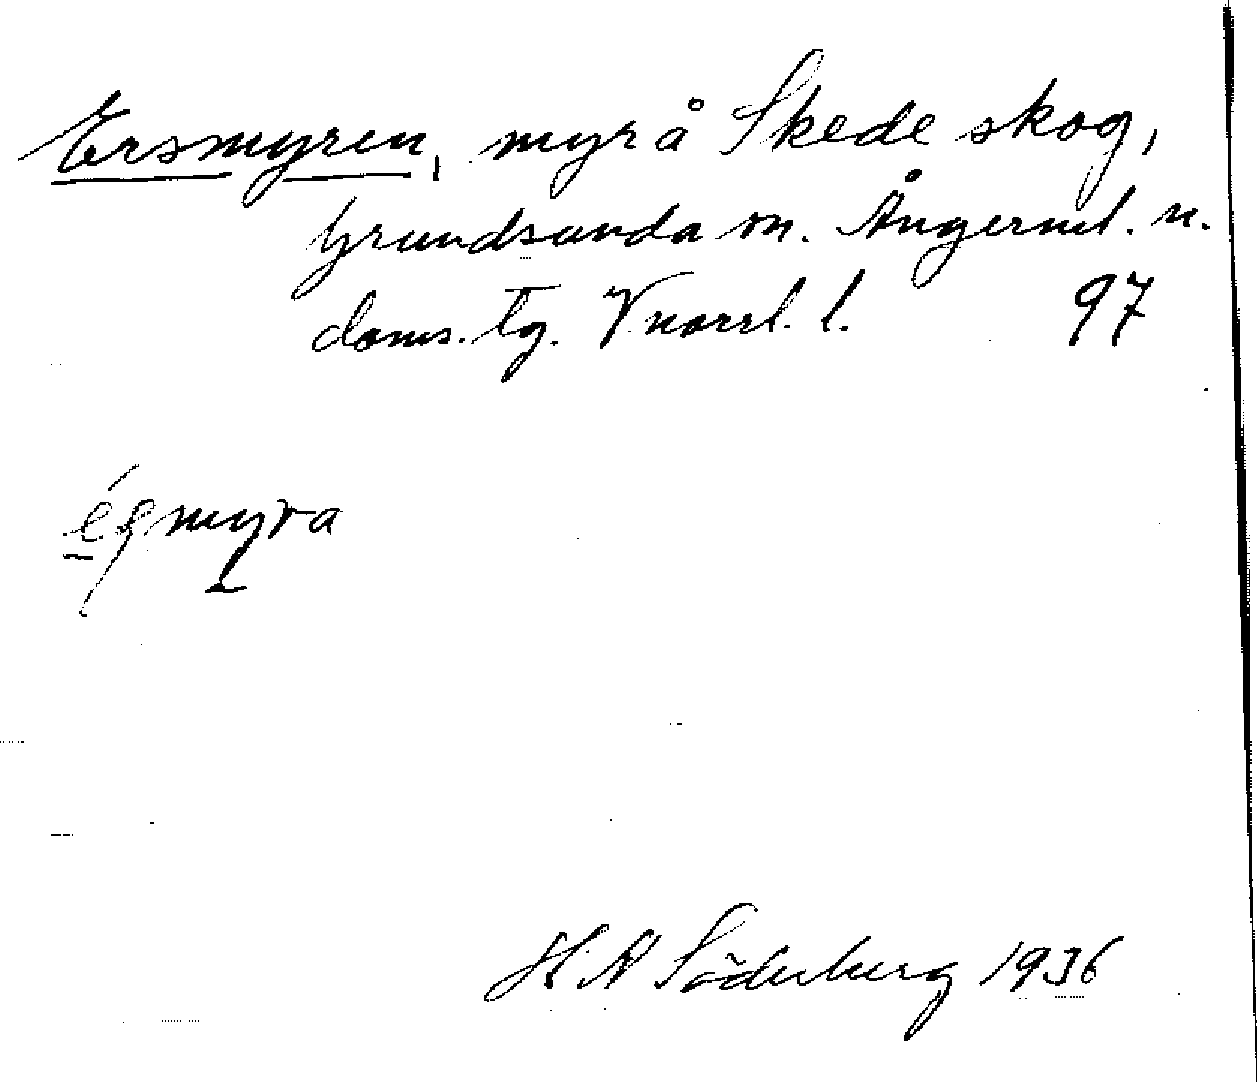 Ersmyren, myr å Skede skog,
Grundsunda sn. Ångerml. n.
doms. tg. Vnorrl. l. 97
myra
H. A Söderberg 1936